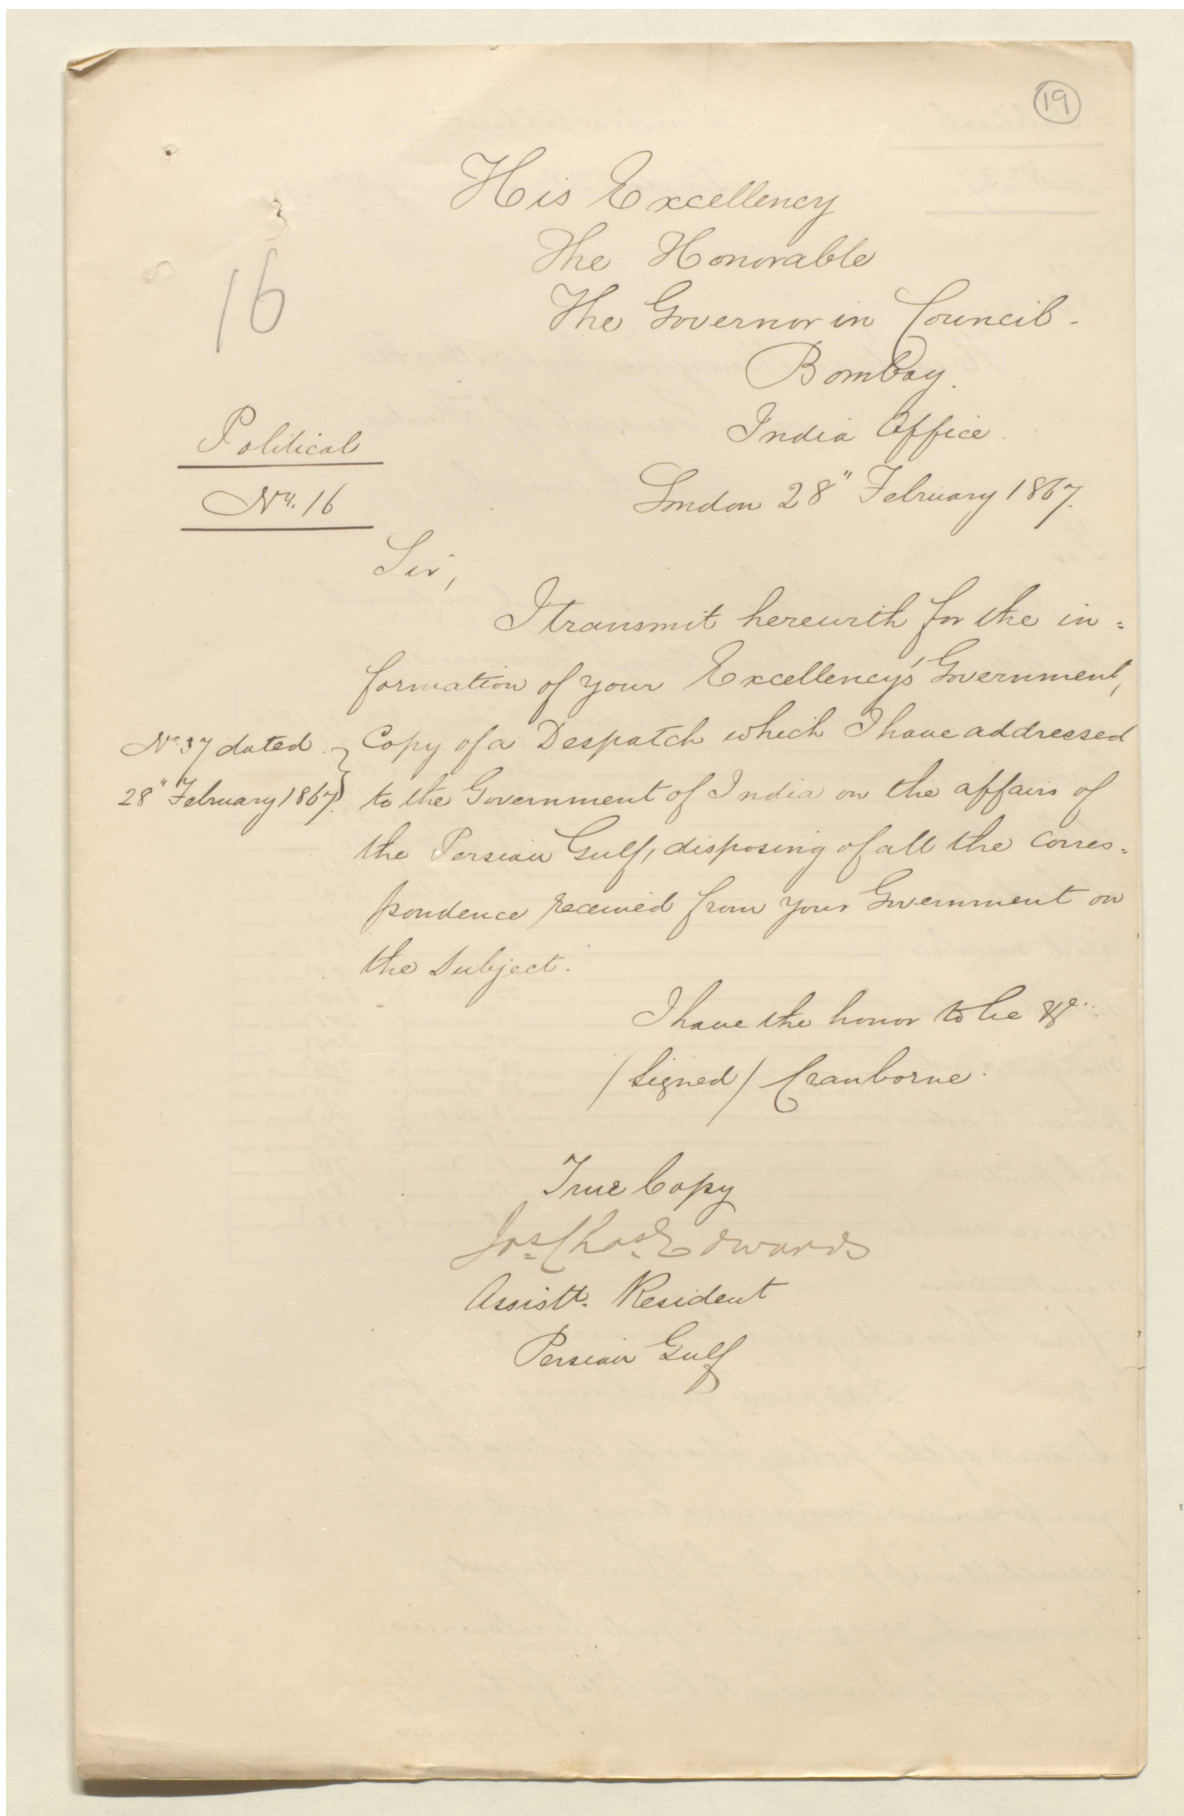 19
His Excellency
The Honorable
The Governor in Council -
Bombay.
16
India Office
Political
London 28" February 1867.
No. 16
Sir,
I transmit herewith for the in=
formation of your Excellency's Government,
No 37 dated
Copy of a Despatch which I have addressed
28" February 1867.
to the Government of India on the affairs of
the Persian Gulf, disposing of all the corres=
pondence received from your Government on
the Subject.
I have the honor to be &c.
/Signed/ Cranborne.
True Copy
Jas Chas Edwards
Assistt. Resident
Persian Gulf